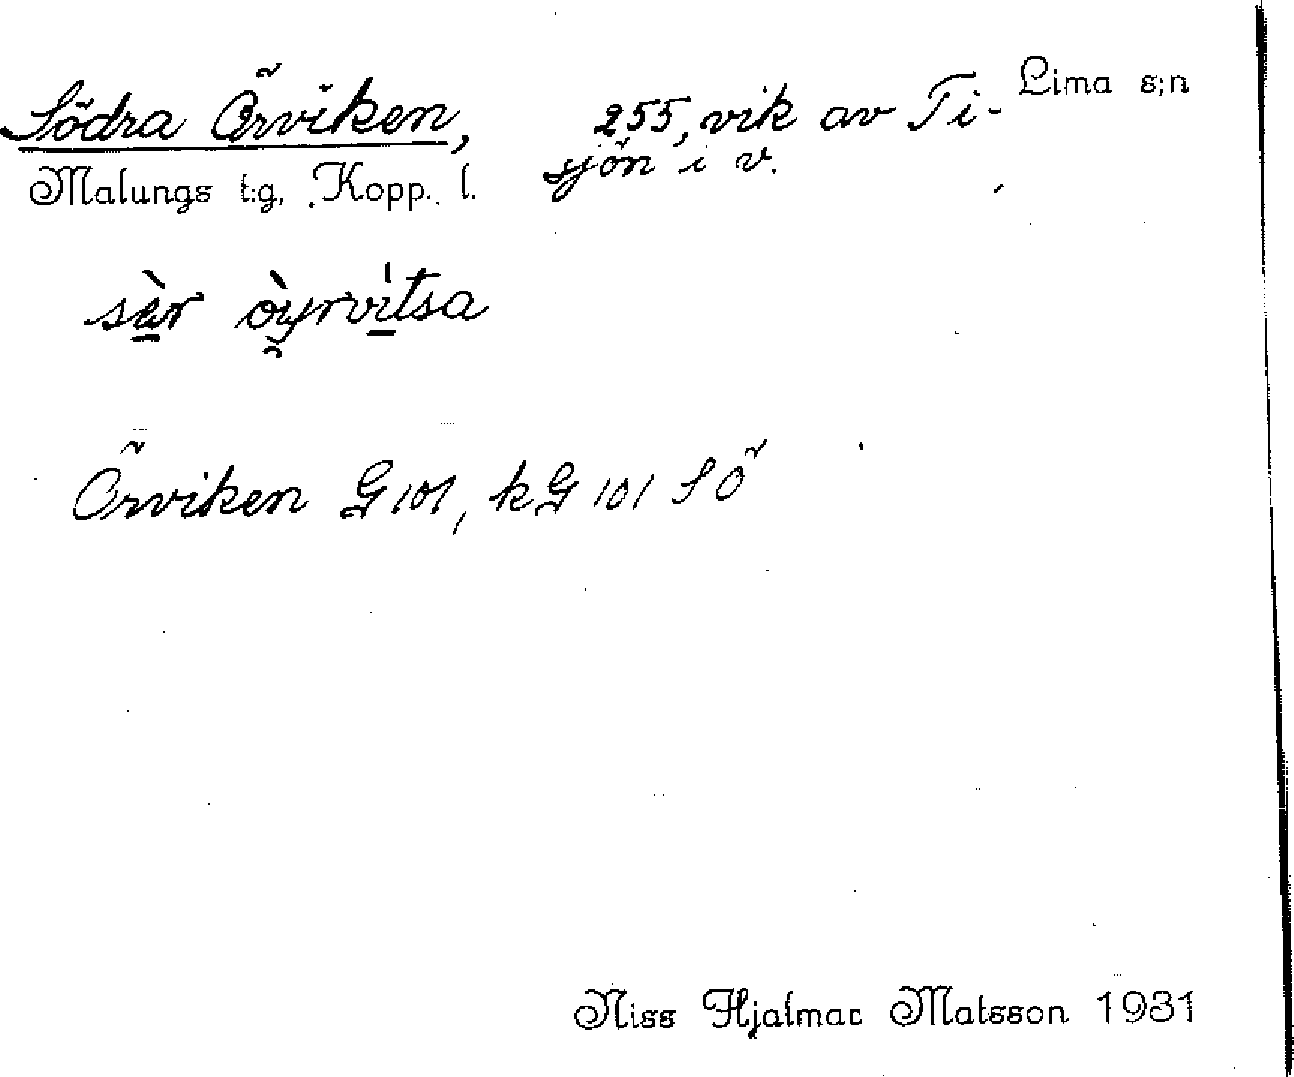 Södra Örviken, 255, vik av Ti- Lima s:n
Malungs t:g, Kopp. l. sjön i v.
sèr òyrvìtsa
Örviken G 101, kG 101 S Ö
Niss Hjalmar Matsson 1931